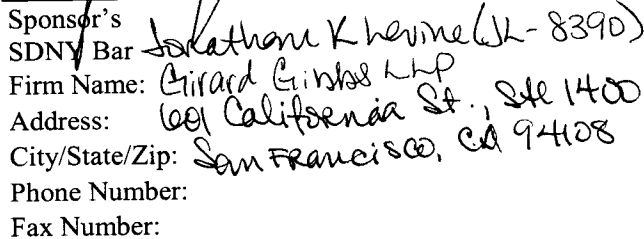 Sponsor's
SDNY Bar Jonathan K Levine (JL-8390)
Firm Name: Girard Gibbs LLP
Address: 601 California St., Ste 1400
City/State/Zip: San Francisco, CA 94108
Phone Number:
Fax Number: